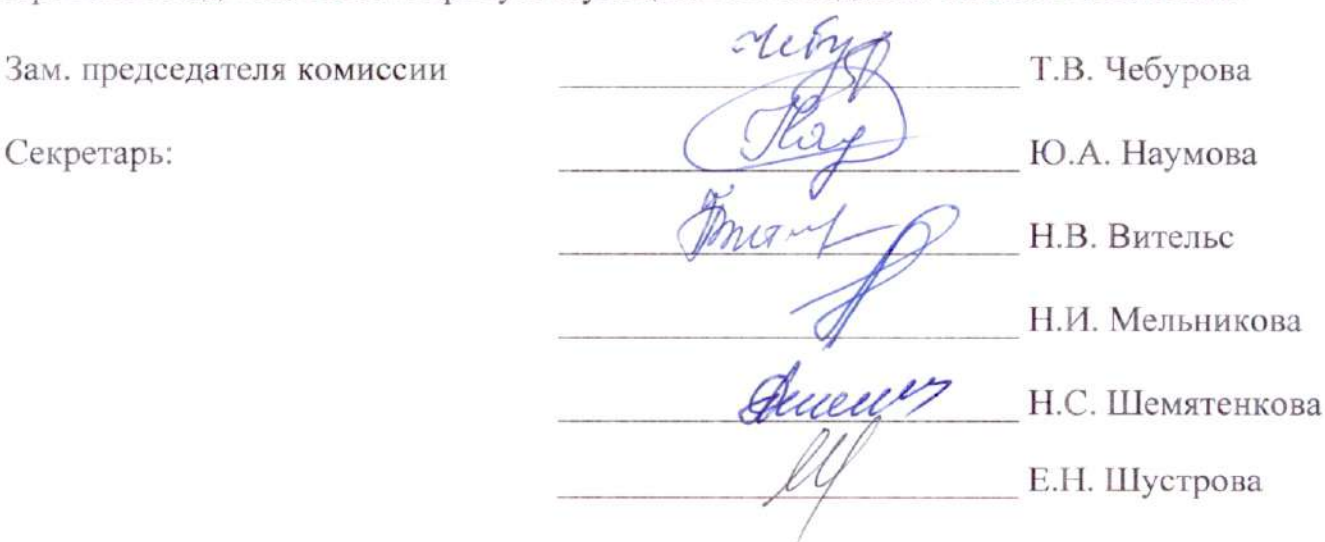 Зам. председателя комиссии Т.В. Чебурова
Секретарь: Ю.А. Наумова
Н.В. Вительс
Н.И. Мельникова
Н.С. Шемятенкова
Е.Н. Шустрова